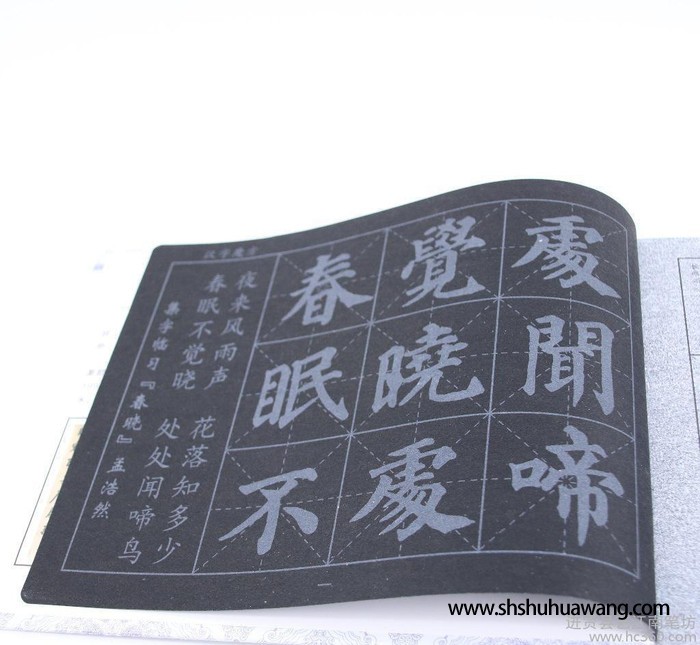 集字临习『春晓』孟浩然
春眠不觉晓 处处闻啼鸟
夜来风雨声 花落知多少
春眠不
覺曉處
處聞啼
一
www.shshuhuawang.com
www.hc360.com